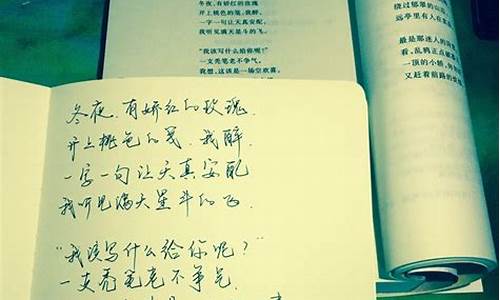 冬夜，有娇红的玫瑰
开上桃色的笺，我醉，
一字一句让天真安配，
我听见满天星斗的飞。
“我该写什么给你呢？”
一支秃笔老不争气。
我想，这该是一场空欢喜，
绕过郁翠的山
远亭里有人在
最是那迷人的
看，乱鸦正点
一顶的小轿，
又赶着前路的
冬夜，有娇红的玫瑰，
开上桃色的笺，我醉，
一字一句让天真安配
我听见满天星斗的飞.
“我该写什么给你呢？”
一支秃笔老不争气.